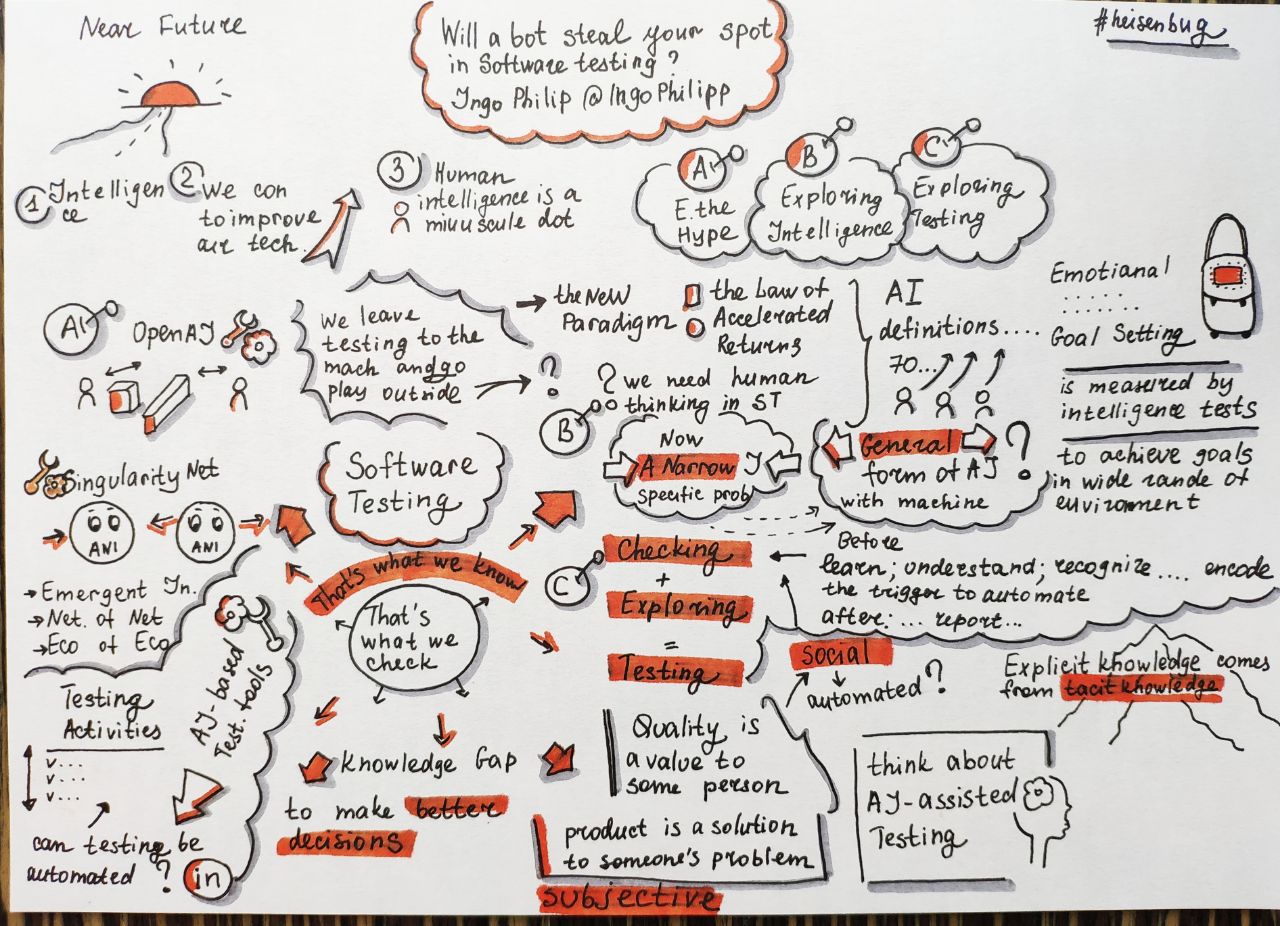 Near Future
Will a bot steal your spot
in Software testing?
Ingo Philip @IngoPhilipp
#heisenbug
1 Intelligen
ce
2 we con
to improve
air tech.
3 Human
intelligence is a
minuscule dot
A
E. the
Hype
B
Exploring
Intelligence
C
Exploring
Testing
AI
OpenAI
we leave
testing to the
mach and go
play outside
?
the New
Paradigm
the Law of
Accelerated
Returns
AI
definitions....
70...
Emotianal
......
......
Goal Setting
is measured by
intelligence tests
to achieve goals
in wide rande of
euvironment
B
? we need human
thinking in ST
Now
A Narrow I
specific prob
General
form of AI
with machine
?
Singularity Net
ANI
ANI
→Emergent In.
→Net. of Net
→Eco of Eco
Software
Testing
That's what we know
That's
what we
check
C
Checking
+
Exploring
=
Testing
Before
learn; understand; recognize .... encode
the trigger to automate
after: ... report...
social
automated?
Explicit knowledge comes
from tacit knowledge
AI-based
Test. tools
in
Testing
Activities
v...
v...
v...
can testing be
automated ?
Knowledge Gap
to make better
decisions
Quality is
a value to
some person
product is a solution
to someone's problem
subjective
think about
AI-assisted
Testing